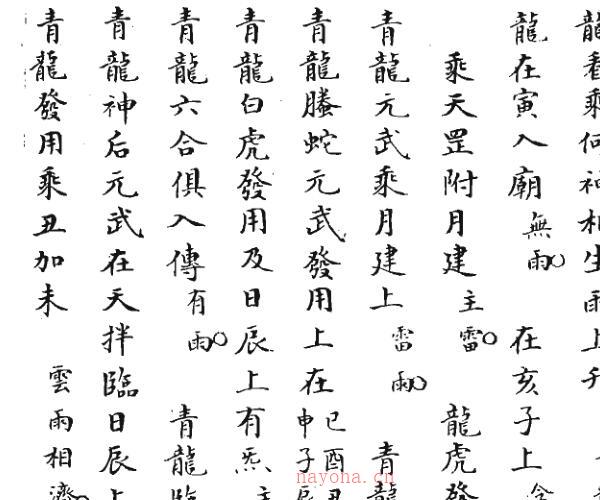 龍看乘何神相生雨上
龍在寅入廟無雨○在亥子上
乘天罡附月建主雷○龍虎發
青龍元武乘月建上雷雨○青龍
青龍螣蛇元武發用上在巳酉丑申子辰
青龍白虎發用及日辰上有炁主
青龍六合俱入傳有雨○青龍臨
青龍神后元武在天拌臨日辰上
青龍發用乘丑加未雲雨相濟○
nayoha.cn